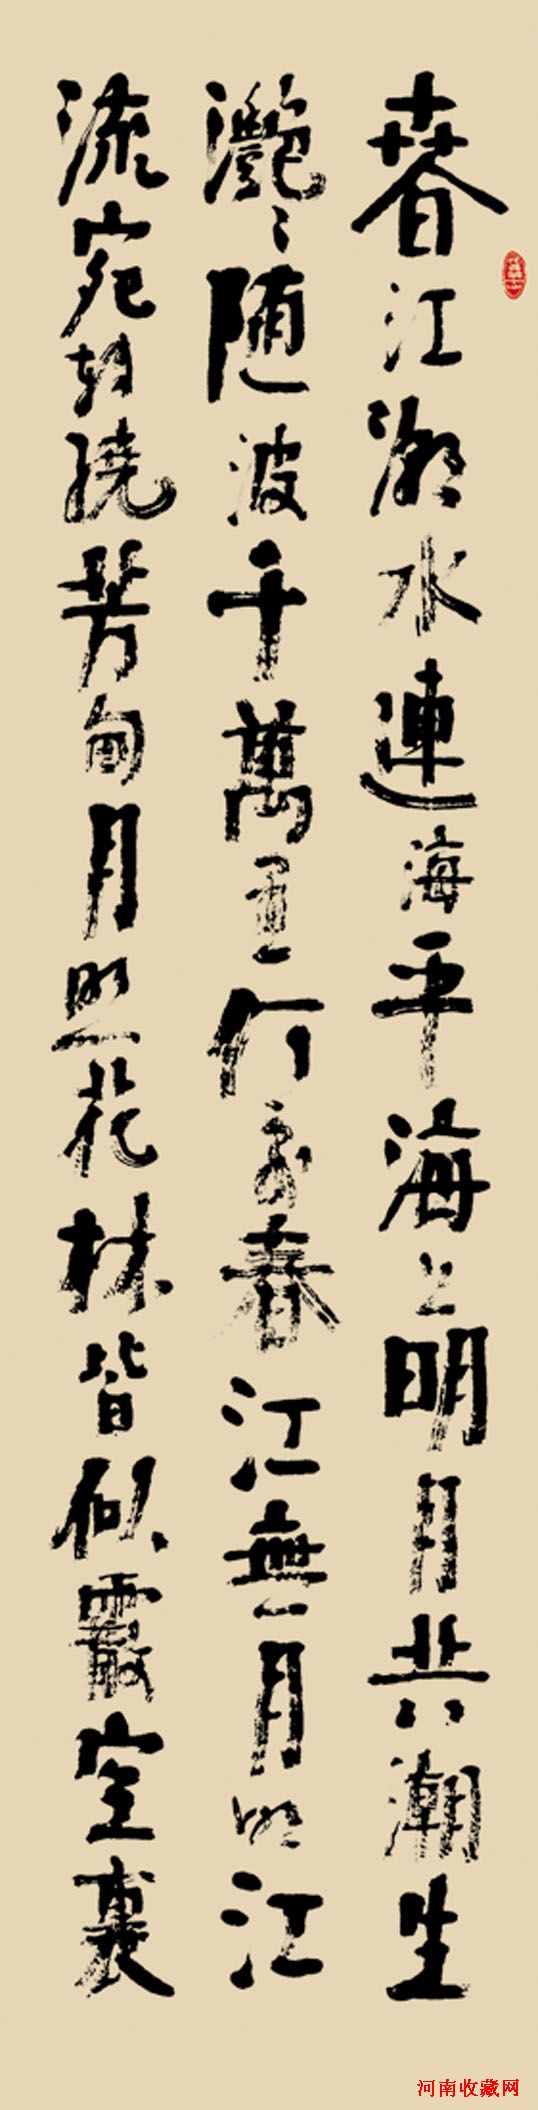 春江潮水連海平海上明月共潮生
灧〻随波千萬里何處春江無月明江
流宛轉繞芳甸月照花林皆似霰空裏
河南收藏网